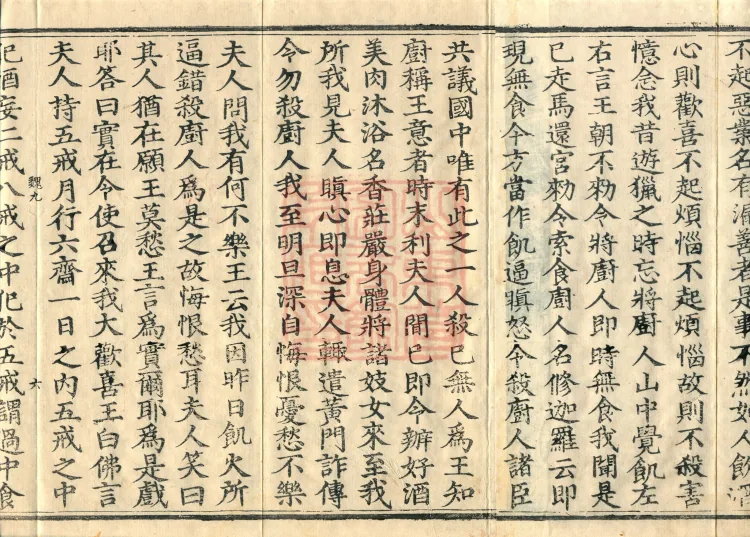 不起惡業名有漏善者是事不然如人飲酒
心則歡喜不起煩惱不起煩惱故則不殺害
憶念我昔遊獵之時忘將廚人山中覺飢左
右言王朝不勑令將廚人即時無食我聞是
已走馬還宮勑令索食廚人名修迦羅云即
現無食今方當作飢逼瞋怒令殺廚人諸臣
共議國中唯有此之一人殺已無人為王知
廚稱王意者時末利夫人聞已即令辦好酒
美肉沐浴名香莊嚴身體將諸妓女來至我
所我見夫人瞋心即息夫人輙遣黃門詐傳
令勿殺廚人我至明旦深自悔恨憂愁不樂
夫人問我有何不樂王云我因昨日飢火所
逼錯殺廚人為是之故悔恨愁耳夫人笑曰
其人猶在願王莫愁王言為實爾耶為是戲
耶答曰實在今使召來我大歡喜王白佛言
夫人持五戒月行六齋一日之內五戒之中
魏九
六
犯酒妄二戒八戒之中犯於五戒謂過中食